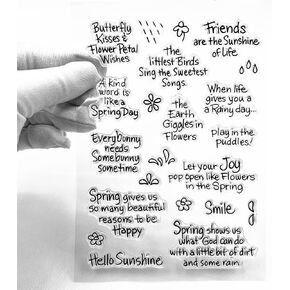 Butterfly
Kisses &
Flower Petal
Wishes
Friends
are the Sunshine
of Life
The
littlest Birds
Sing the Sweetest
Songs
A Kind
word is
like a
Spring Day
When life
gives you a
a Rainy day...
The
Earth
Giggles in
Flowers
play in the
puddles!
Every Bunny
needs
Somebunny
sometime
Let your Joy
pop open like Flowers
in the Spring
Spring gives us
so many beautiful
reasons to be
Happy
Smile
Spring shows us
what God can do
with a little bit of dirt
and some rain.
Hello Sunshine